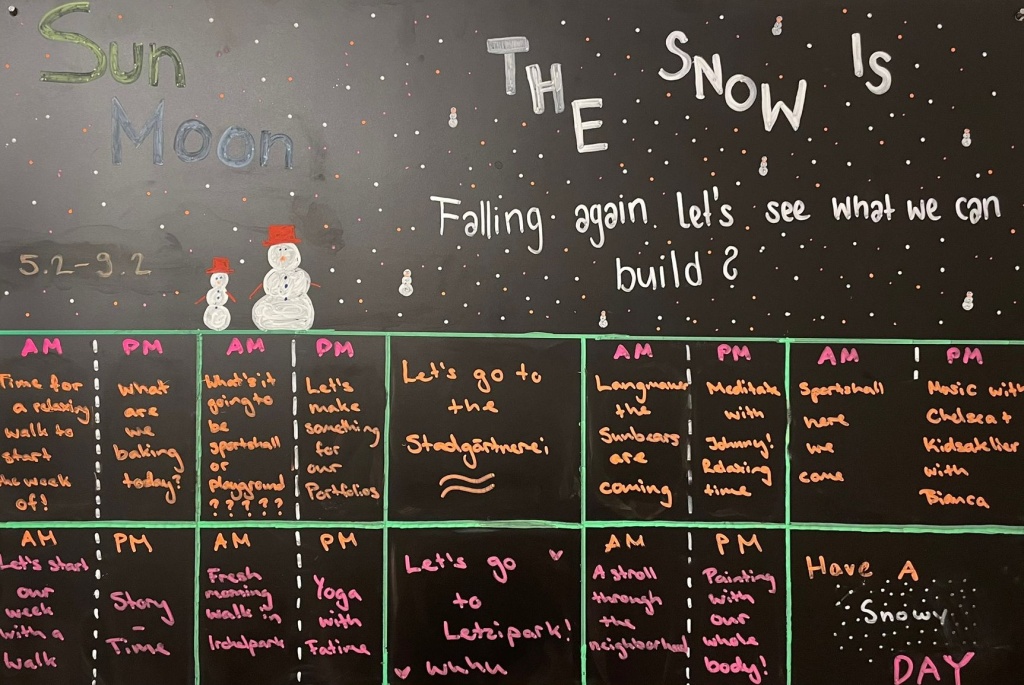 Sun
Moon
THE SNOW IS
Falling again. Let's see what we can
build?
5.2-9.2
AM
Time for
a relaxing
walk to
start
the week
of!
PM
What
are
we
baking
today?
AM
What's it
going to
be
sportshall
or
playground
? ? ? ? ?
PM
Let's
make
something
for
our
Portfolios
Let's go to
the
Stadgärtnerei
AM
Langmauer
the
Sunbears
are
coming
PM
Meditate
with
Johnny!
Relaxing
time
AM
Sportshall
here
we
come
PM
Music with
Chelsea +
Kidsatelier
with
Bianca
AM
Let's start
our
week
with a
walk
PM
Story
-
Time
AM
Fresh
morning
walk in
Irchelpark
PM
Yoga
with
Fatime
Let's go
to
Letzipark!
whhh
AM
A stroll
through
the
neighborhood
PM
Painting
with
our
whole
body!
Have A
Snowy
DAY